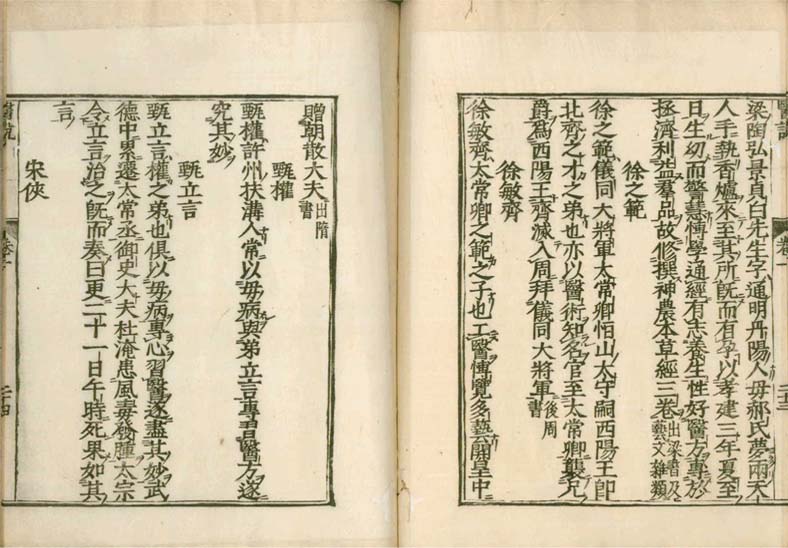 醫說
卷一
二十三
梁陶弘景貞白先生字通明丹陽人母郝氏夢兩天
人手執香爐來至其所旣而有孕以孝建三年夏至
日生幼而警慧博學通經有志養生性好醫方專於
拯濟利益羣品故修撰神農本草經三卷出梁書及藝文雜類
徐之範
徐之範儀同大將軍太常卿恒山太守嗣西陽王卽
北齊之才之弟也亦以醫術知名官至太常卿襲兄
爵爲西陽王齊滅入周拜儀同大將軍後周書
徐敏齊
徐敏齊太常卿之範之子也工醫博覽多藝開皇中
贈朝散大夫出隋書
甄權
甄權許州扶溝人常以母病與弟立言專習醫方遂
究其妙
甄立言
甄立言權之弟也俱以母病專心習醫遂盡其妙武
德中累遷太常丞御史大夫杜淹患風毒發腫太宗
令立言治之旣而奏曰更二十一日午時死果如其
言
宋俠
醫說
卷一
二十四